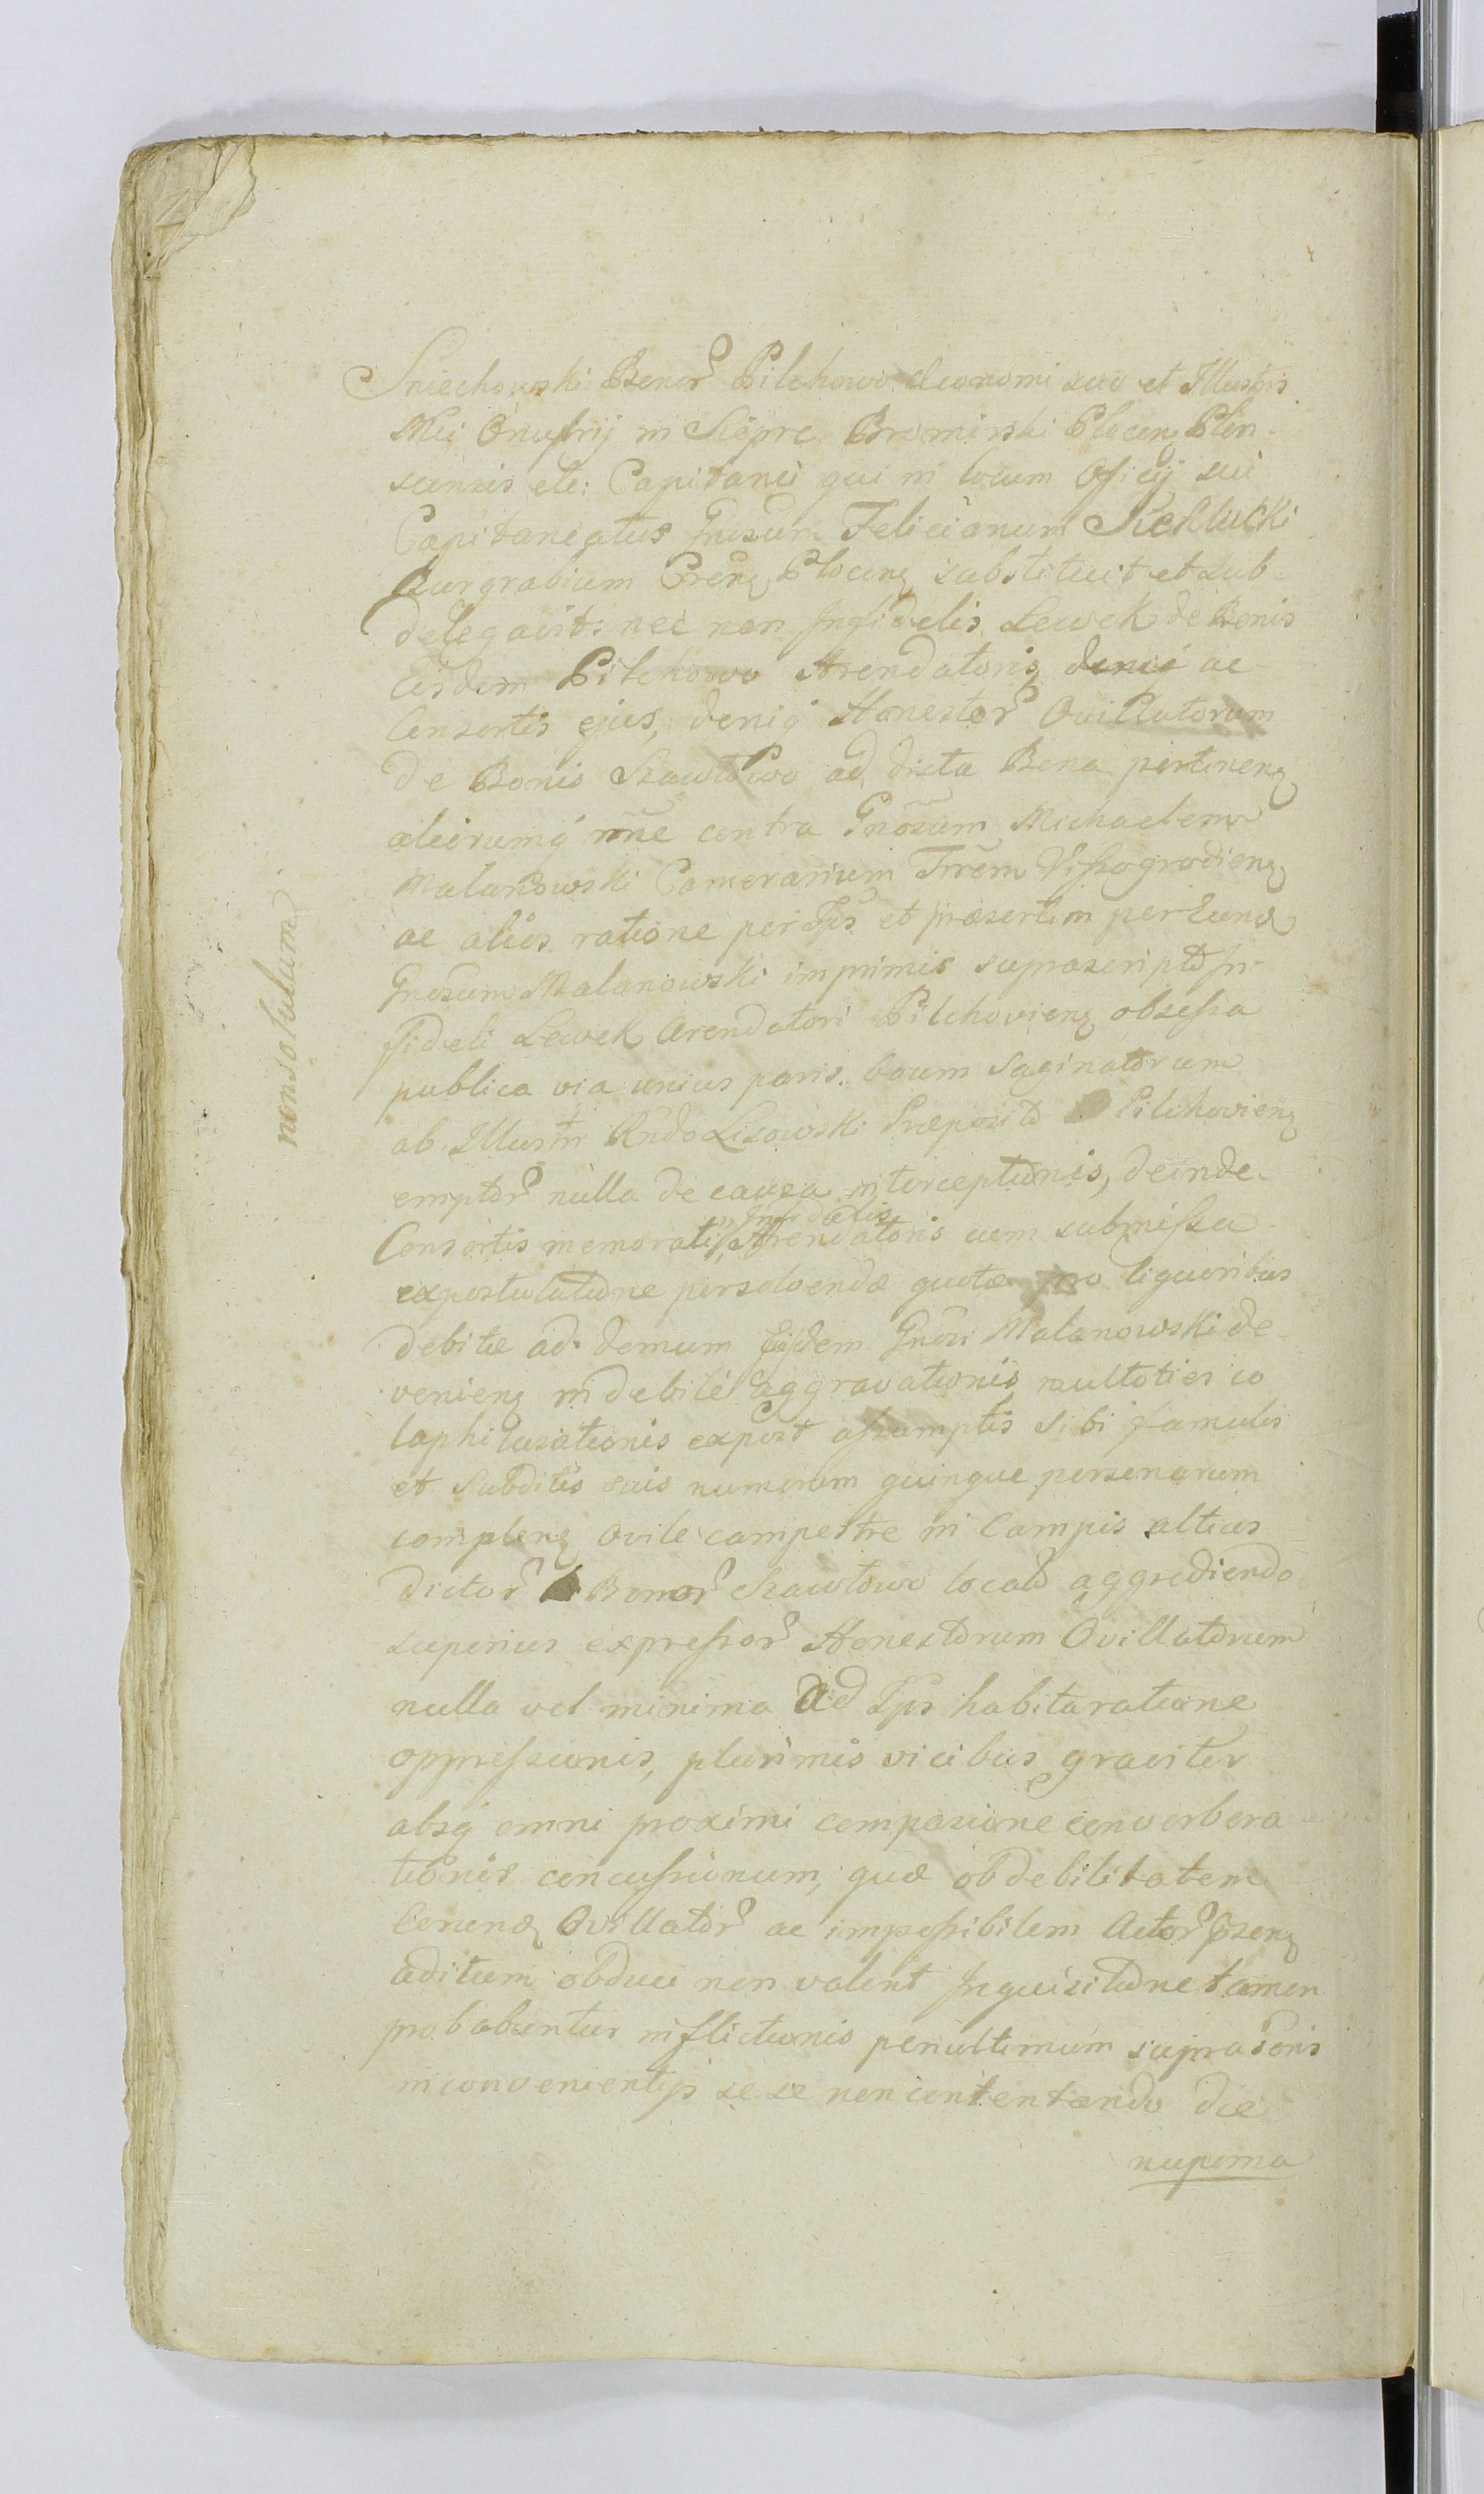 Sniechowski Bonor Pilchowo Oeconomi suo et Illustris
Mci Onufrij in Siepre Bromirski Plocen Plon-
scensis etc: Capitanei qui in locum Officij sui
Capitaneatus Gnosum Felicianum Kekluckі
Burgrabium Crens Plocens substituit et sub-
delegavit: nec non Infidelis Lewek de Bonis
Eisdem Pilchowo Arendatoris ac
Consortis ejus, deniq Honestor Ovillatorum
de Bonis Szawlowo ad dicta Bona pertinens
aliorumq nne contra Gnosum Michaelem
Malanowski Camerarium Trrem Vissogrodiens
ac alios ratione per Ips et praesertim per eund
Gnosum Malanowski imprimis suprascripto In-
fideli Lewek Arendatori Pilchoviens obsessa
publica via unius paris boum saginatorum
ab Illustri Rndo Lisowski Praeposito Pilchoviens
emptor nulla de causa interceptionis, deinde
Infidelis
Consortis memorati Arendatoris cum submissa
expostulatione persolvendae quotae pro liquoribus
debitae ad domum Ejsdem Gnosi Malanowski de-
veniens indebite aggravationis multoties co
laphisationis expost assumptis sibi famulis
et subditis suis numerum quinque personarum
complens ovile campestre in Campis altius
dictor Bonor Szawlowo locato aggrediendo
superius expressor Honestorum Ovillatorum
nulla vel minima ad Ips habita ratione
oppressionis, plurimis vicibus graviter
absq omni proximi compasione converbera-
tionis concussionum, quae ob debilitatem
Eorund Ovillator ac impossibilem Actor psens
aditum obduci non valent Inquisitione tamen
probabuntur inflictionis penultimum supra
inconvenientijs se se non contentando die
nuperna
non solutum